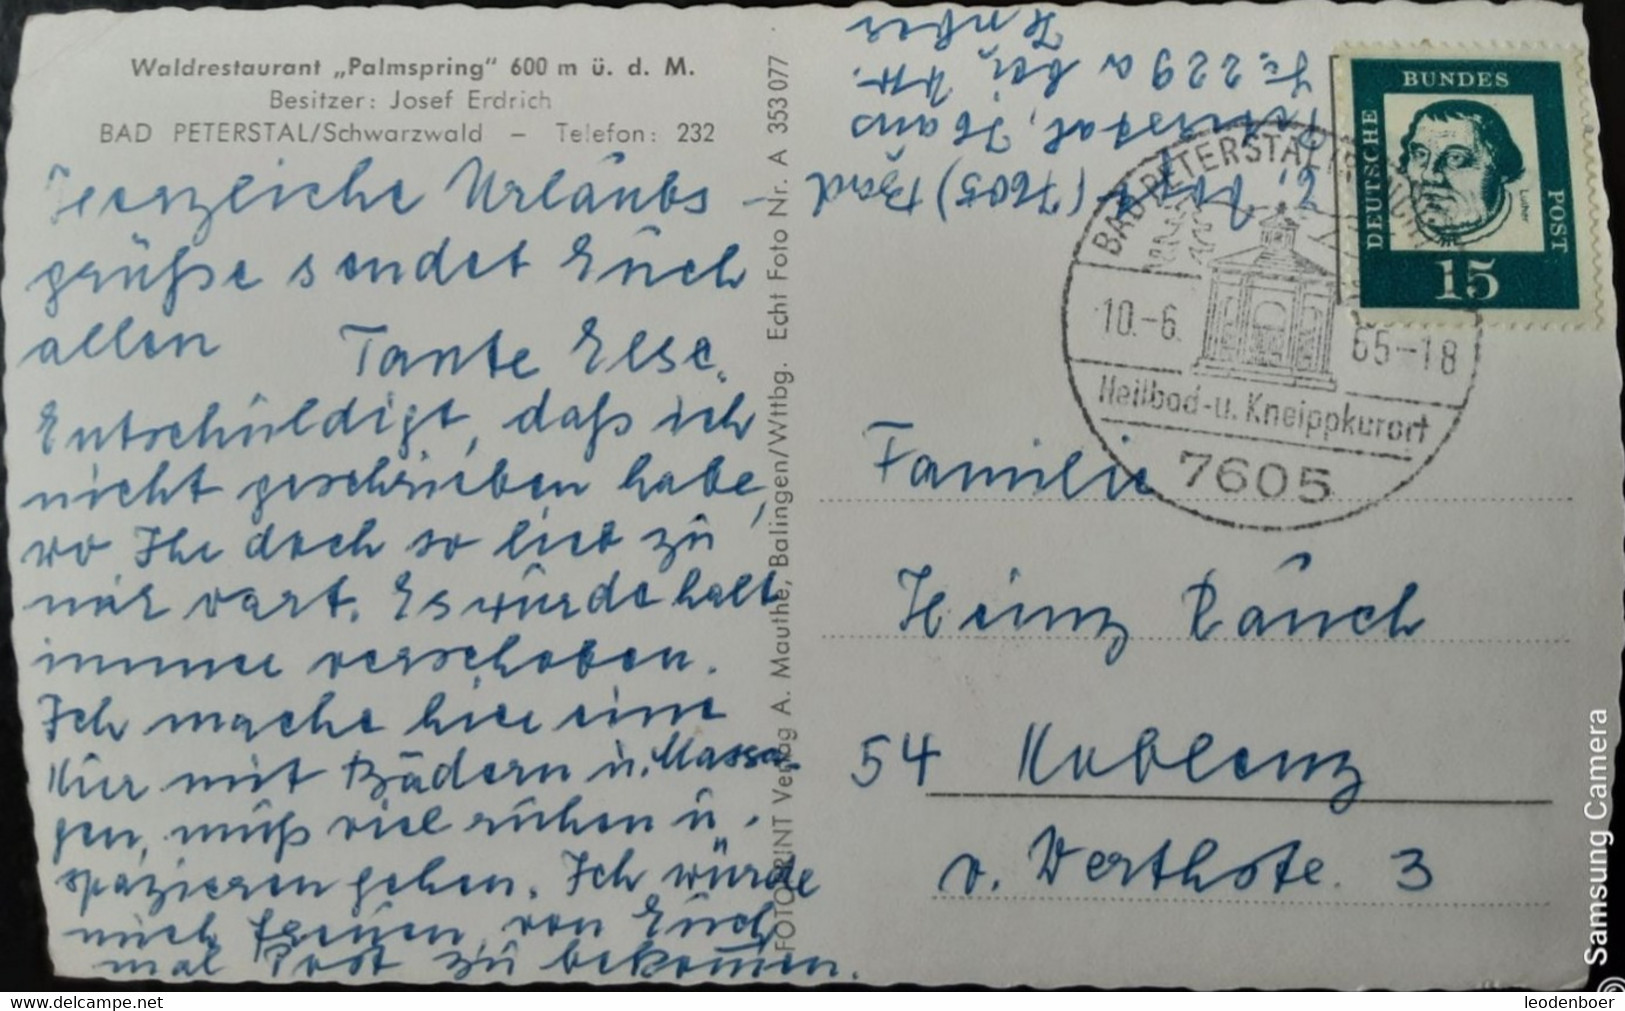 Waldrestaurant „Palmspring" 600 m ü. d. M.
Besitzer: Josef Erdrich
BAD PETERSTAL/Schwarzwald – Telefon: 232
Herzliche Urlaubs-
grüße sendet Euch
allen Tante Else.
Entschuldigt, daß ich
nicht geschrieben habe,
wo Ihr doch so lieb zu
mir wart. Es wurde halt
immer verschoben.
Ich mache hier eine
Kur mit Bädern u. Massa-
gen, muß viel ruhen u.
spazieren gehen. Ich würde
mich freuen, von Euch
mal Post zu bekommen.
FOTOPRINT Verlag A. Mauthe, Balingen/Wttbg. Echt Foto Nr. A 353 077
(7605) Bad
Peterstal, Haus
229a bei
BAD PETERSTAL
10.-6. 65-18
Heilbad-u. Kneippkurort
7605
DEUTSCHE
BUNDES
POST
Luther
15
Familie
Heinz Rauch
54 Koblenz
v. Werthstr. 3
Samsung Camera
leodenboer